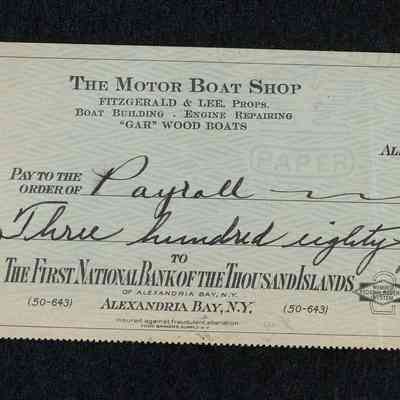 THE MOTOR BOAT SHOP
FITZGERALD & LEE, PROPS.
BOAT BUILDING - ENGINE REPAIRING
"GAR" WOOD BOATS
PAPER
AL
PAY TO THE
ORDER OF Payroll
Three hundred eighty
TO
THE FIRST NATIONAL BANK OF THE THOUSAND ISLANDS
OF ALEXANDRIA BAY, N.Y.
(50-643) ALEXANDRIA BAY, N.Y. (50-643)
MEMBER
FEDERAL RESERVE
SYSTEM
insured against fraudulent alteration